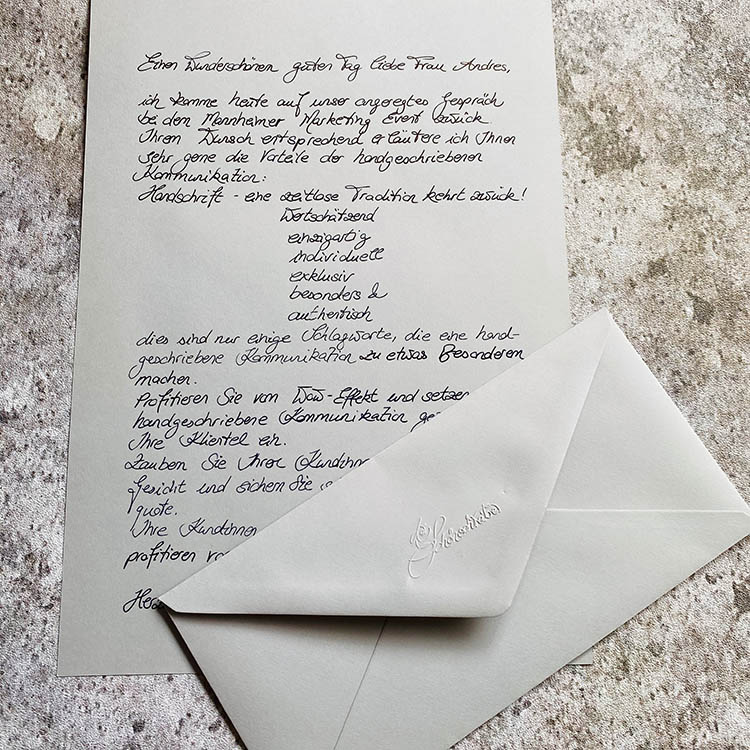 Einen Wunderschönen guten Tag liebe Frau Andres,
ich komme heute auf unser angeregtes Gespräch
bei dem Mannheimer Marketing Event zurück.
Ihrem Wunsch entsprechend erläutere ich Ihnen
sehr gerne die Vorteile der handgeschriebenen
Kommunikation:
Handschrift - eine zeitlose Tradition kehrt zurück!
Wertschätzend
einzigartig
individuell
exklusiv
besonders &
authentisch
dies sind nur einige Schlagworte, die eine hand-
geschriebene Kommunikation zu etwas Besonderen
machen.
Profitieren Sie vom Wow-Effekt und setzen
handgeschriebene Kommunikation
Ihre Klientel ein.
Zaubern Sie Ihren
Gesicht und sichern Sie
quote.
Ihre Kundinnen
profitieren
die Schönschreiber